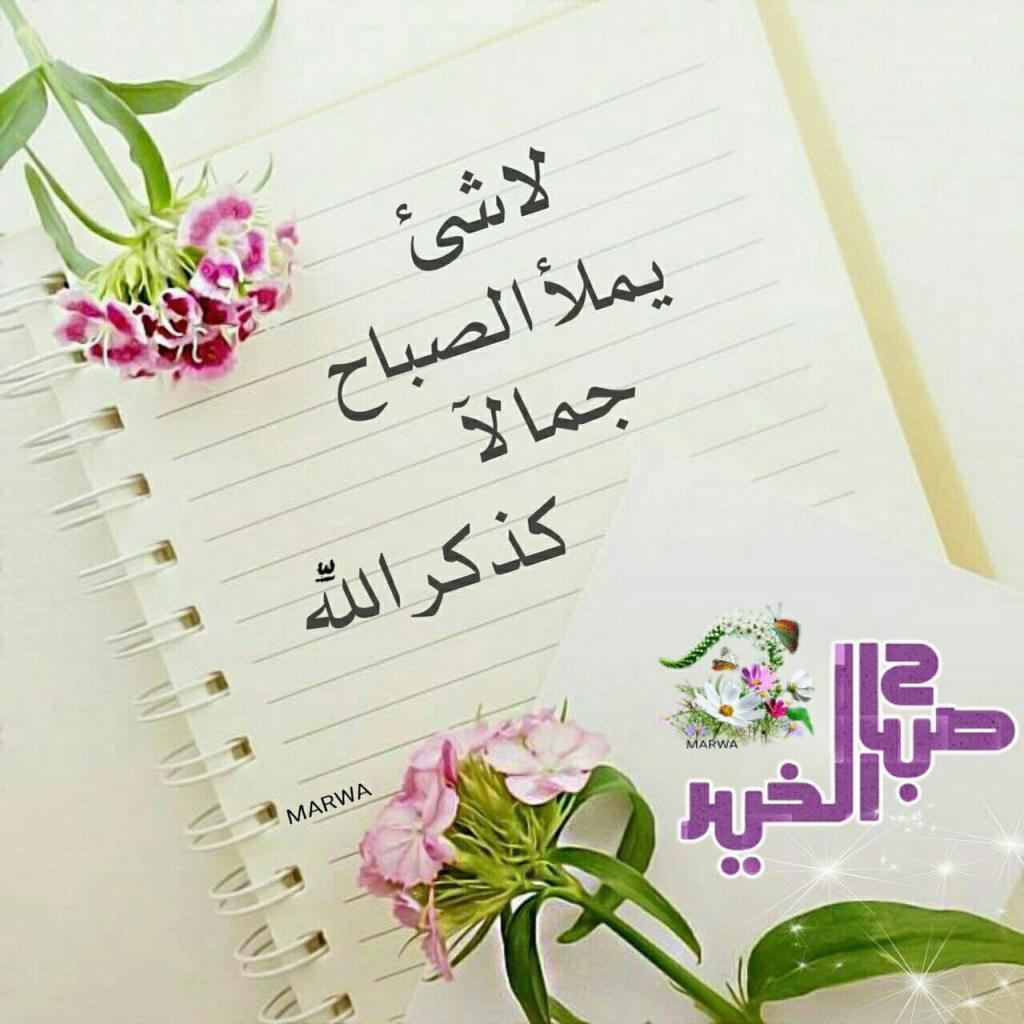 لاشئ
يملأ الصباح
جمالآ
كذكر الله
MARWA
MARWA
صباح
الخير